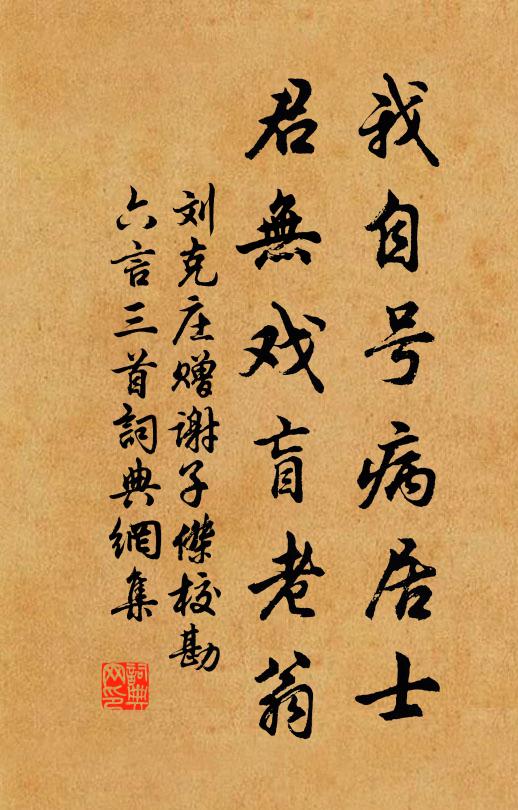 我自号病居士
君無戏盲老翁
刘克庄赠谢子傑校勘
六言三首詞典網集
詞典
网印